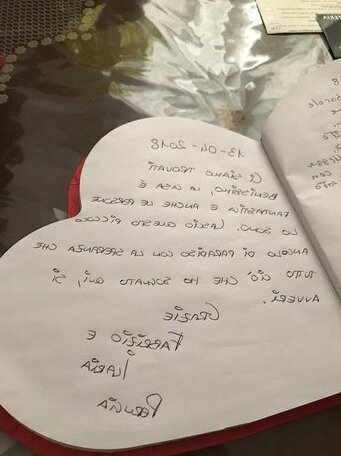 13-04-2018
Ci siamo trovati
benissimo, la è
fantastica e anche le persone
lo sono. Lascio questo piccolo
angolo di paradiso con la speranza che
tutto ciò, che ho sognato qui, si
avveri.
Grazie
Fabrizio e
Ilaria
Perugia